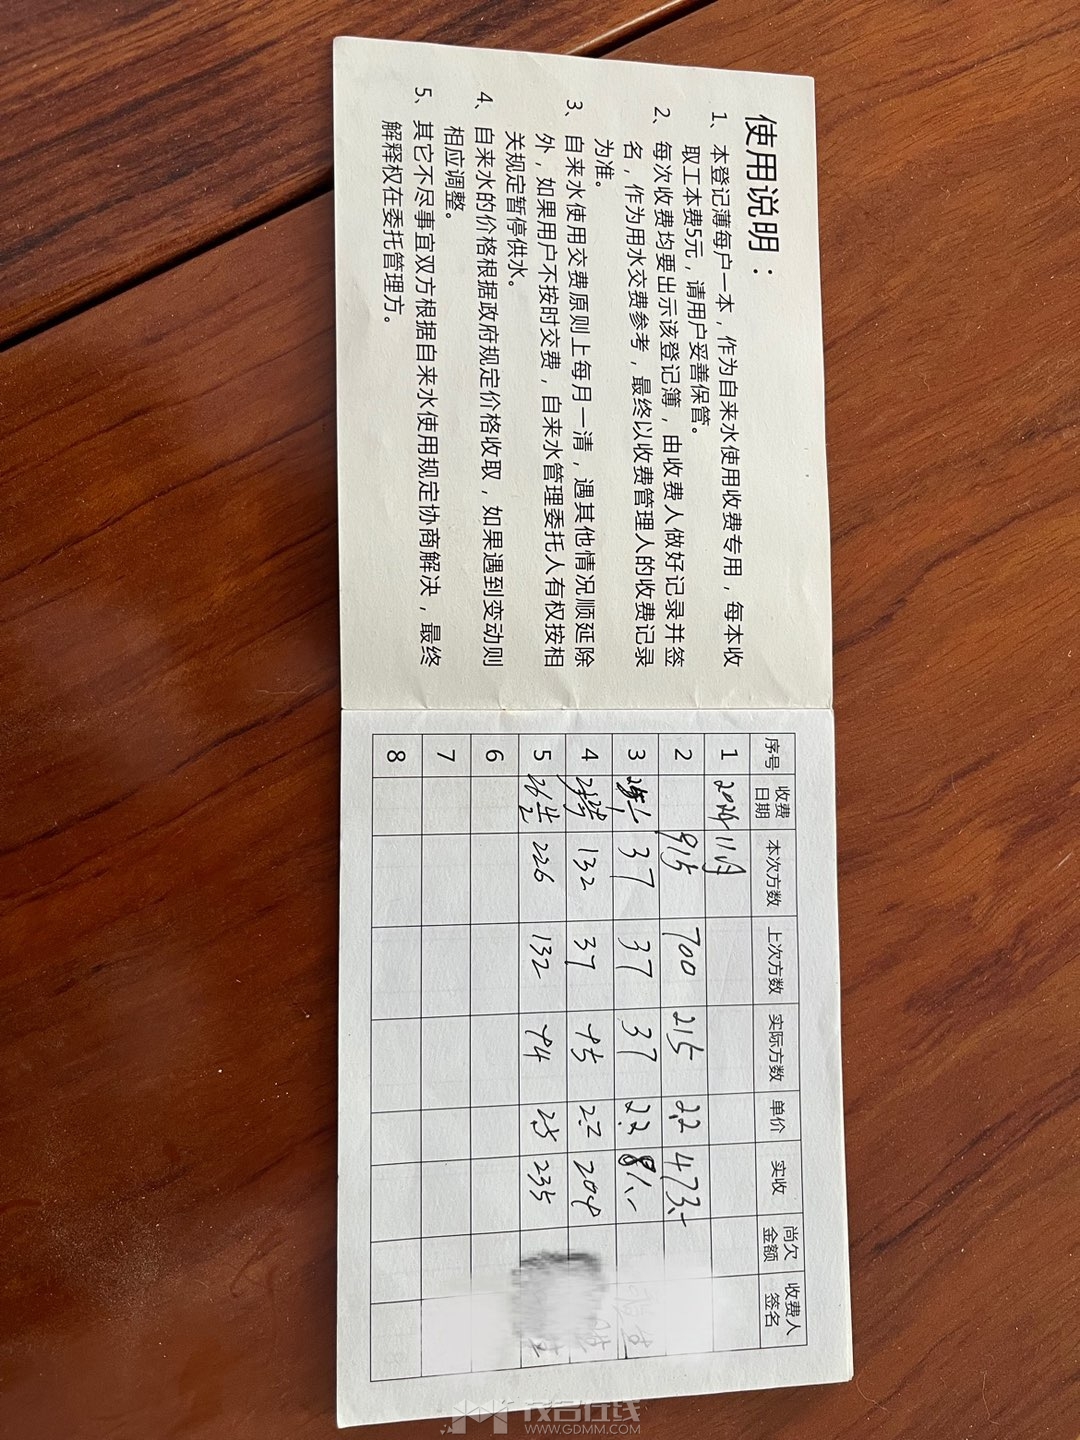 使用说明：
1、本登记薄每户一本，作为自来水使用收费专用，每本收
取工本费5元，请用户妥善保管。
2、每次收费均要出示该登记簿，由收费人做好记录并签
名，作为用水交费参考，最终以收费管理人的收费记录
为准。
3、自来水使用交费原则上每月一清，遇其他情况顺延除
外，如果用户不按时交费，自来水管理委托人有权按相
关规定暂停供水。
4、自来水的价格根据政府规定价格收取，如果遇到变动则
相应调整。
5、其它不尽事宜双方根据自来水使用规定协商解决，最终
解释权在委托管理方。
序号 收费日期 本次方数 上次方数 实际方数 单价 实收 尚欠金额 收费人签名
1 11月
2 915 700 215 2.2 473.-
3 37 37 37 2.2 81.-
4 132 37 95 2.2 204
5 226 132 94 2.5 235
6
7
8
茂名在线
WWW.GDMM.COM